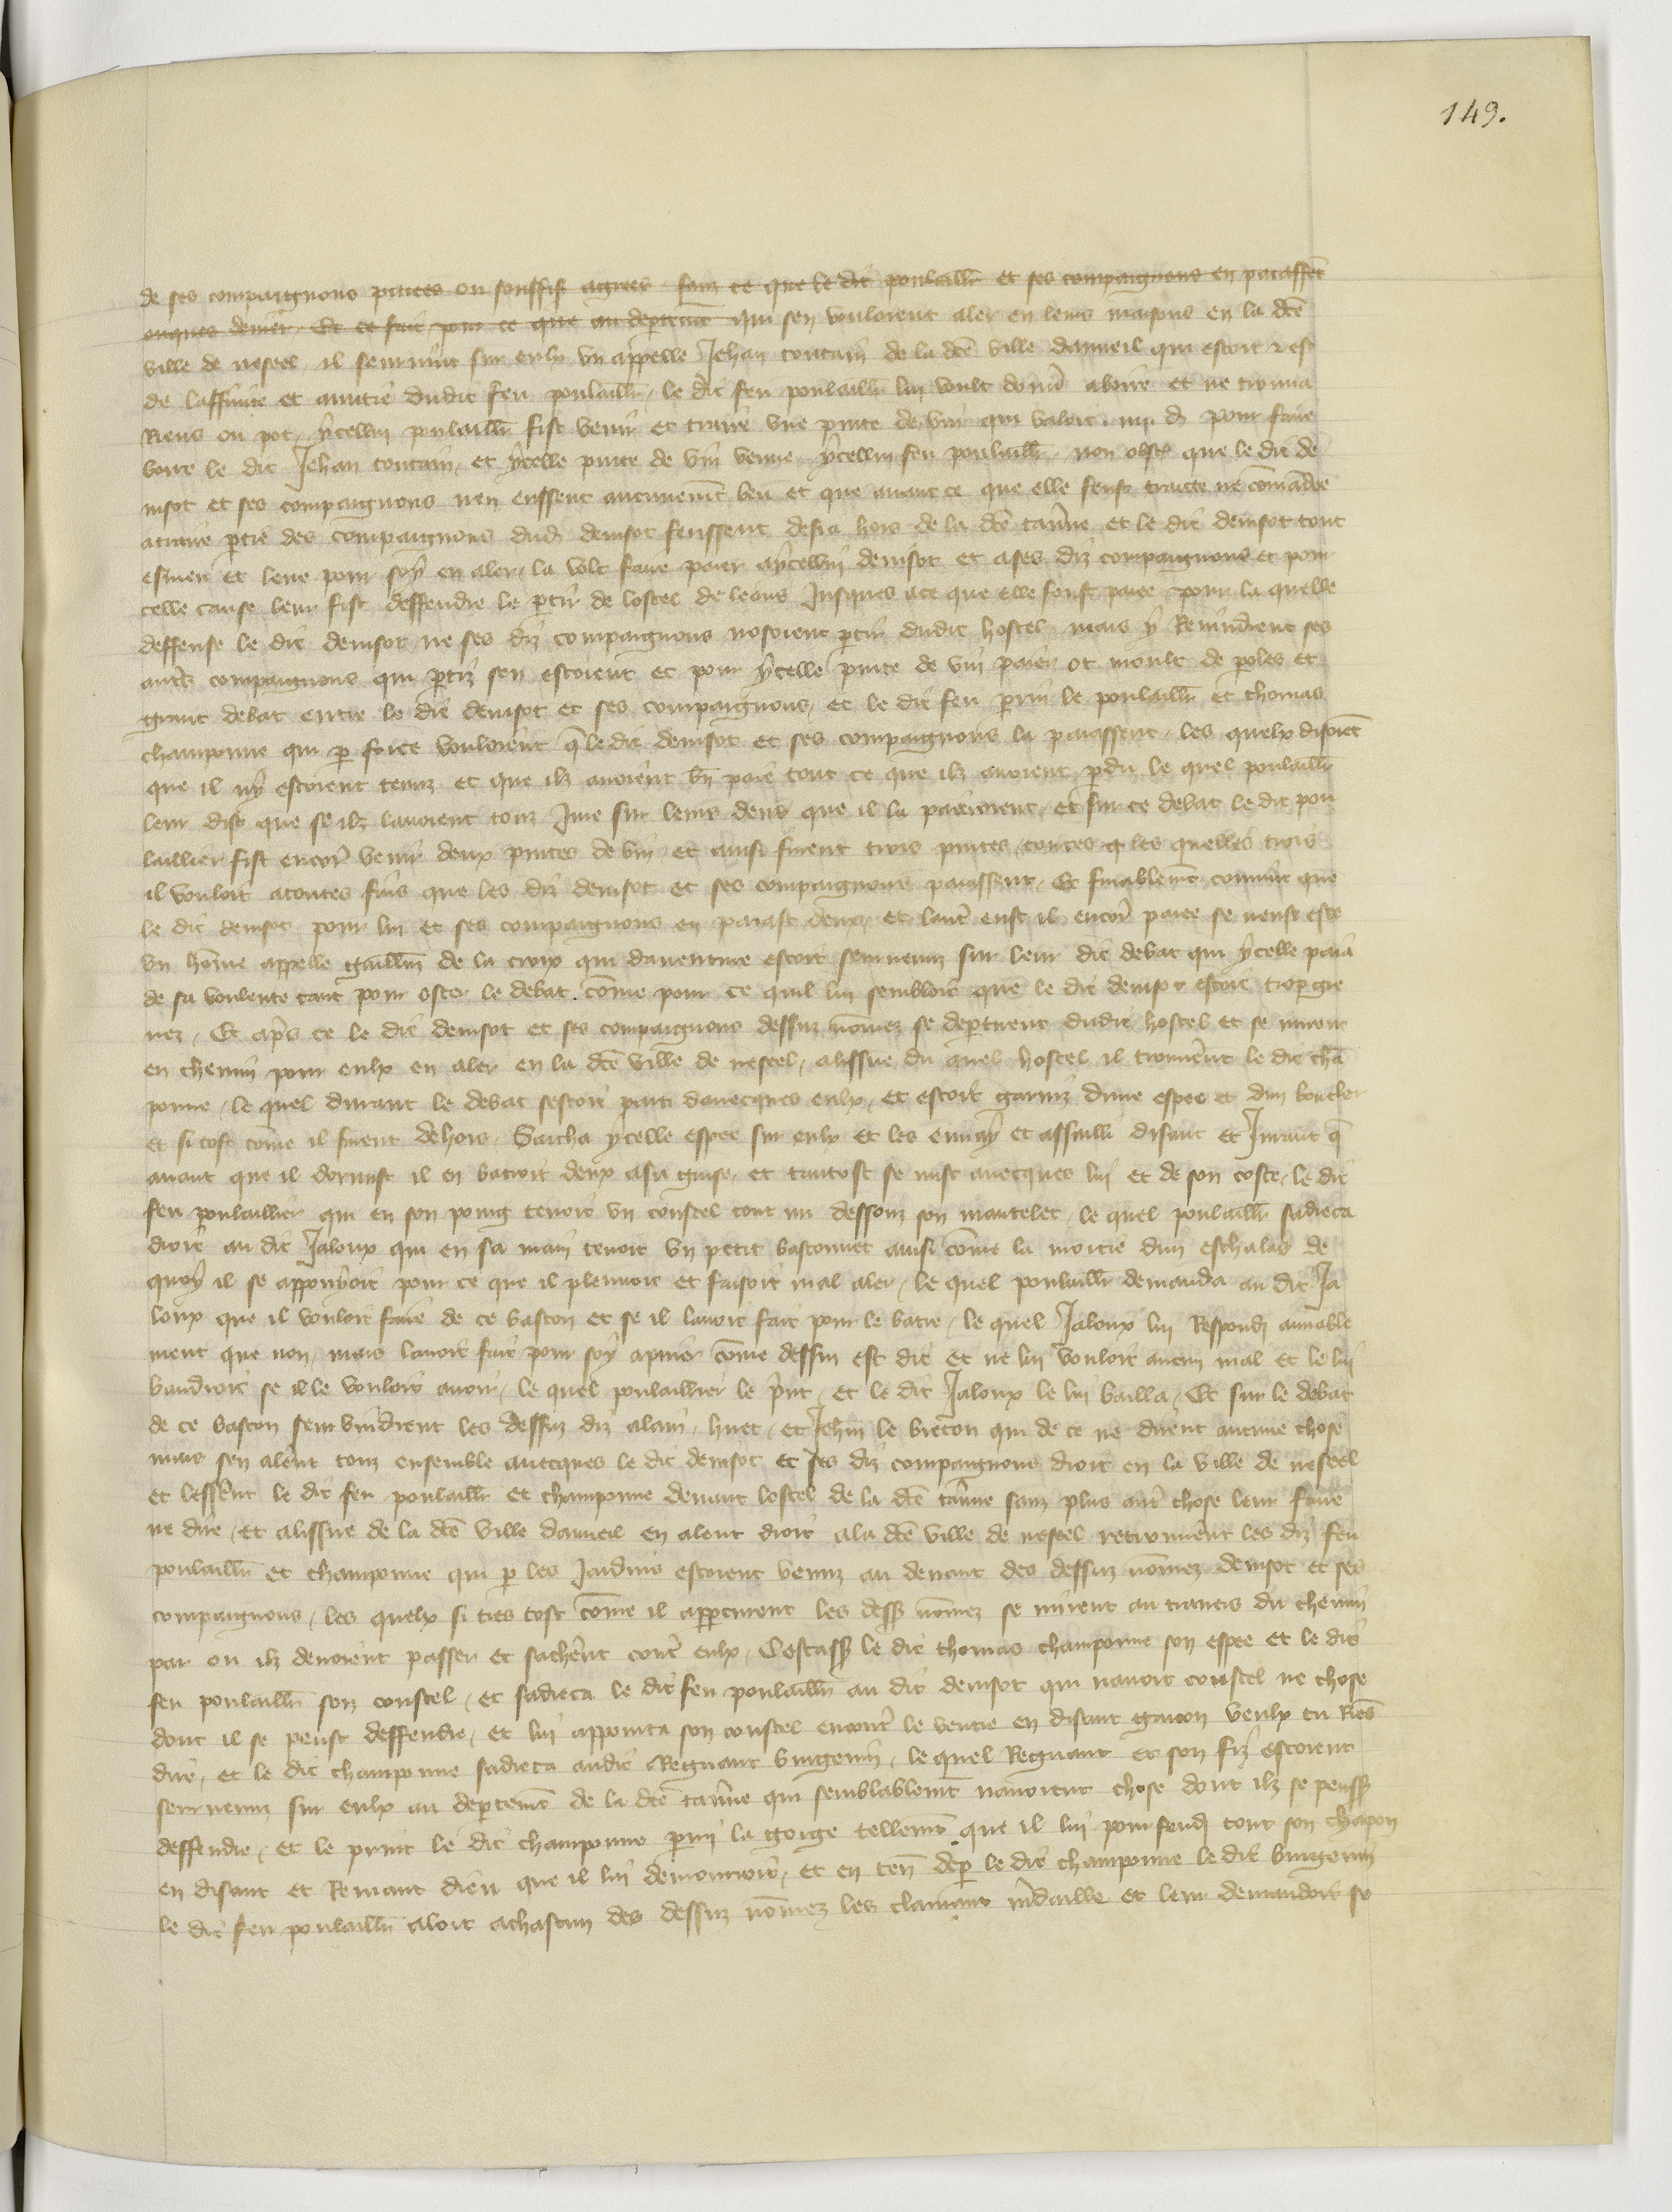 149.
de ses compaignons paiees ou souffis agrees sanz ce que le dit poulaillr et ses compaignons en paiassent
onques denier Et ce fait pour ce que au deptement qui sen vouloient aler en leurs maisons en la dce
ville de nesteel il seurvint sur eulx un appelle Jehan toutain de la dce ville dauneil qui estoit et est
de laffinite et amitie dudit feu poulaillr le dit feu poulaillr lui voult donner a boire et ne trouva
Riens ou pot ycellui poulaillr fist venir et traire une pinte de vin qui valoit iiii d pour faire
boire le dit Jehan toutain et ycelle pinte de vin venue ycellui feu poulaillr non obst que le dit de
nisot et ses compaignons nen eussent aucunemt beu et que avant ce que elle feust traicte ne comandee
a traire ptie des compaignons dud denisot feussent desia hors de la dce tavne et le dit denisot tout
esmeu et leve pour soy en aler la volt faire paier a ycellui denisot et a ses diz compaignons et pour
celle cause leur fist deffendre le ptir de lostel de leans Jusques a ce que elle feust paiee pour la quelle
deffense le dit denisot ne ses diz compaignons nosoient ptir dudit hostel mais y Revindrent ses
autres compaignons qui ptiz sen estoient et pour ycelle pinte de vin paier ot moult de poles et
grant debat entre le dit denisot et ses compaignons et le dit feu perrin le poulaillr et thomas
champonne qui p force vouloient q le dit denisot et ses compaignons la paiassent les quelx disoient
que il ny estoient tenuz et que ilz avoient bn paie tout ce que ilz avoient pdu le quel poulaillr
leur dist que se ilz lavoient touz Jure sur leurs dens que il la paieroient et sur ce debat le dit pou
laillier fist encor venir deux pintes de vin et ainsi furent trois pintes toutes les quelles trois
il vouloit a toutes fins que les diz denisot et ses compaignons paiassent Et finablemt convint que
le dit denisot pour lui et ses compaignons en paiast deux et lautre eust il encor paiee se neust este
un home appelle guillm de la croix qui daventure estoit seurvenuz sur leur dit debat qui ycelle paia
de sa voulente tant pour oster le debat come pour ce quil lui sembloit que le dit denisot estoit trop gre
vez Et aprs ce le dit denisot et ses compaignons dessuz nomez se deptirent dudit hostel et se mirent
en chemin pour eulx en aler en la dce ville de nesteel a lissue du quel hostel il trouverent le dit cham
ponne le quel durant le debat sestoit parti davecques eulx et estoit garniz dune espee et dun boucler
et si tost come il furent dehors Sacha ycelle espee sur eulx et les envay et assailli disant et Jurant q
avant que il dormist il en batroit deux a sa guise et tantost se mist avecques lui et de son coste le dit
feu poulaillier qui en son poing tenoit un coustel tout nu dessouz son mantelet le quel poulaillr sadreca
droit au dit Jaloux qui en sa main tenoit un petit bastonnet ainsi come la moitie dun eschalas de
quoy il se appouyoit pour ce que il plouvoit et faisoit mal aler le quel poulaillr demanda au dit Ja
loux que il vouloit faire de ce baston et se il lavoit fait pour le batre le quel Jaloux lui Respondi aimable
ment que non mais lavoit fait pour soy apuier come dessus est dit et ne lui vouloit aucun mal et le lui
baudroit se il le vouloit avoir le quel poulaillier le print et le dit Jaloux le lui bailla Et sur le debat
de ce baston seurvindrent les dessuz diz alain huet et Jehan le breton qui de ce ne dirent aucune chose
mais sen alerent touz ensemble avecques le dit denisot et ses diz compaignons droit en la ville de nesteel
et lesserent le dit feu poulaillr et champonne devant lostel de la dce tavne sanz plus autre chose leur faire
ne dire et a lissue de la dce ville dauneil en alent droit a la dce ville de nesteel retrouverent les diz feu
poulaillr et champonne qui p les Jardins estoient venuz au devant des dessuz nomez denisot et ses
compaignons les quelx si tres tost come il apperceurent les dess nomez se mirent au travers du chemin
par ou ilz devoient passer et sacherent contre eulx Cestass le dit thomas champonne son espee et le dit
feu poulaillr son coustel et sadreca le dit feu poulaillr au dit denisot qui navoit coustel ne chose
dont il se peust deffendre et lui appointa son coustel encontre le ventre en disant garcon veulx tu Riens
dire et le dit champonne sadreca audit Regnaut bingenin le quel Regnaut et son filz estoient
seurvenuz sur eulx au deptemt de la dce tavne qui semblablemt navoient chose dont ilz se peuss
deffendre et le print le dit champonne pmi la gorge tellemt que il lui pourfendi tout son chapon
en disant et Reniant dieu que il lui demourroit et en ten dep le dit champonne le dit bingenin
le dit feu poulaillr aloit a chascun des dessuz nomez les clamant mdaille et leur demandoit se